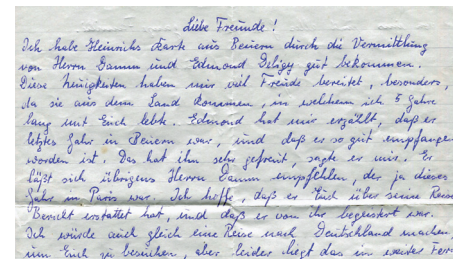 Liebe Freunde!
Ich habe Heinrichs Karte aus Beuern durch die Vermittlung
von Herrn Damm und Edmond Deligy gut bekommen.
Diese Neuigkeiten haben mir viel Freude bereitet, besonders,
da sie aus dem Land kommen, in welchem ich 5 Jahre
lang mit Euch lebte. Edmond hat mir erzählt, daß er
letztes Jahr in Beuern war, und daß er so gut empfangen
worden ist. Das hat ihm sehr gefreut, sagte er mir. Er
läßt sich übrigens Herrn Damm empfehlen, der ja dieses
Jahr in Paris war. Ich hoffe, daß er Euch über seine Reise
Bericht erstattet hat, und daß er von ihr begeistert war.
Ich würde auch gleich eine Reise nach Deutschland machen,
um Euch zu besuchen, aber leider liegt das in weiter Fern